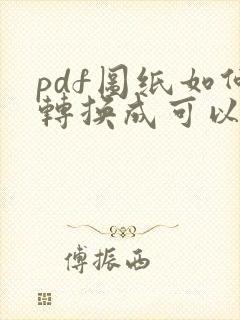 pdf图纸如何
轉换成可以
傅振西